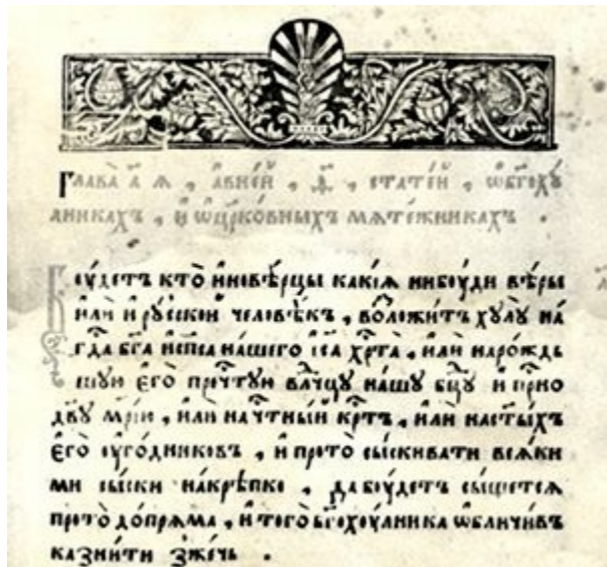 Глава̀ а҃ ꙗ , а҆вне́й , ѳ҃ , стате́й , ѡ҆бг҃охꙋ́
лникахъ , и҆ ѡ҆црко́вныхъ мѧте́жникахъ .
Бꙋ́детъ кто̀ и҆нове́рцы какі́ѧ нибоу́ди вѣ́ры
и҆лѝ и҆ рꙋ́сскои человѣ́къ , воз̾ложи́тъ хꙋлꙋ̀ на́
гд҇а бг҃а и҆ сп҃са на́шего і҆с҃а хр҇та̀ , и҆лѝ наро́ждь
шꙋю є҆го̀ пречⷭ҇тꙋю влⷣчцꙋ на́шꙋ бц҃ꙋ и҆ прⷭ҇но
дв҃ꙋ мр҃і́ю , и҆лѝ на чⷭ҇тны́и крⷭ҇тъ , и҆лѝ на ст҃ы́хъ
є҆го̀ оу҆го́дниковъ , и҆ прото̀ сы́скивати всѧ́ки
ми сы́ски на́крѣпко , да боу́детъ сы́щетсѧ
прото̀ до́прѧма , и҆ того̀ бг҃охоу́лника ѡ҆бличи́въ
казни́ти зже́чь .